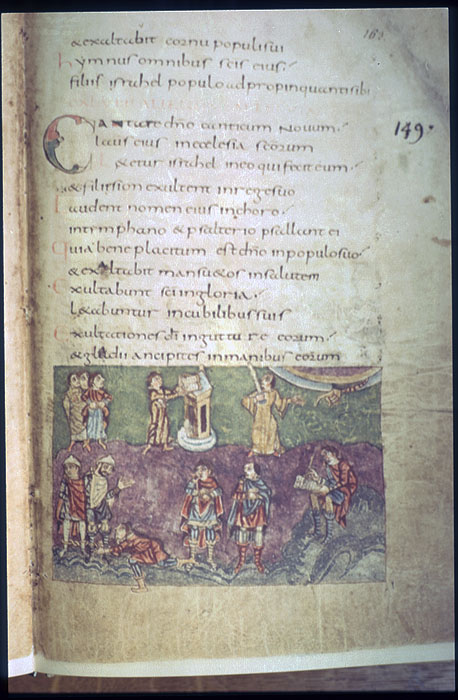 163
&exaltabit cornu populi sui
hymnus omnibus scis eius
filiis israhel populo adpropinquanti sibi
149
Cantate dno canticum novum
Laus eius in ecclesia scorum
Laetetur israhel in eo qui fecit eum
&filii sion exultent in rege suo
Laudent nomen eius in choro
in tymphano & psalterio psallant ei
quia bene placitum est dno in populo suo
& exaltabit mansuetos in salutem
Exultabunt sci in gloria
laetabuntur in cubilibus suis
Exultationes di in gutture eorum
& gladii ancipites in manibus eorum